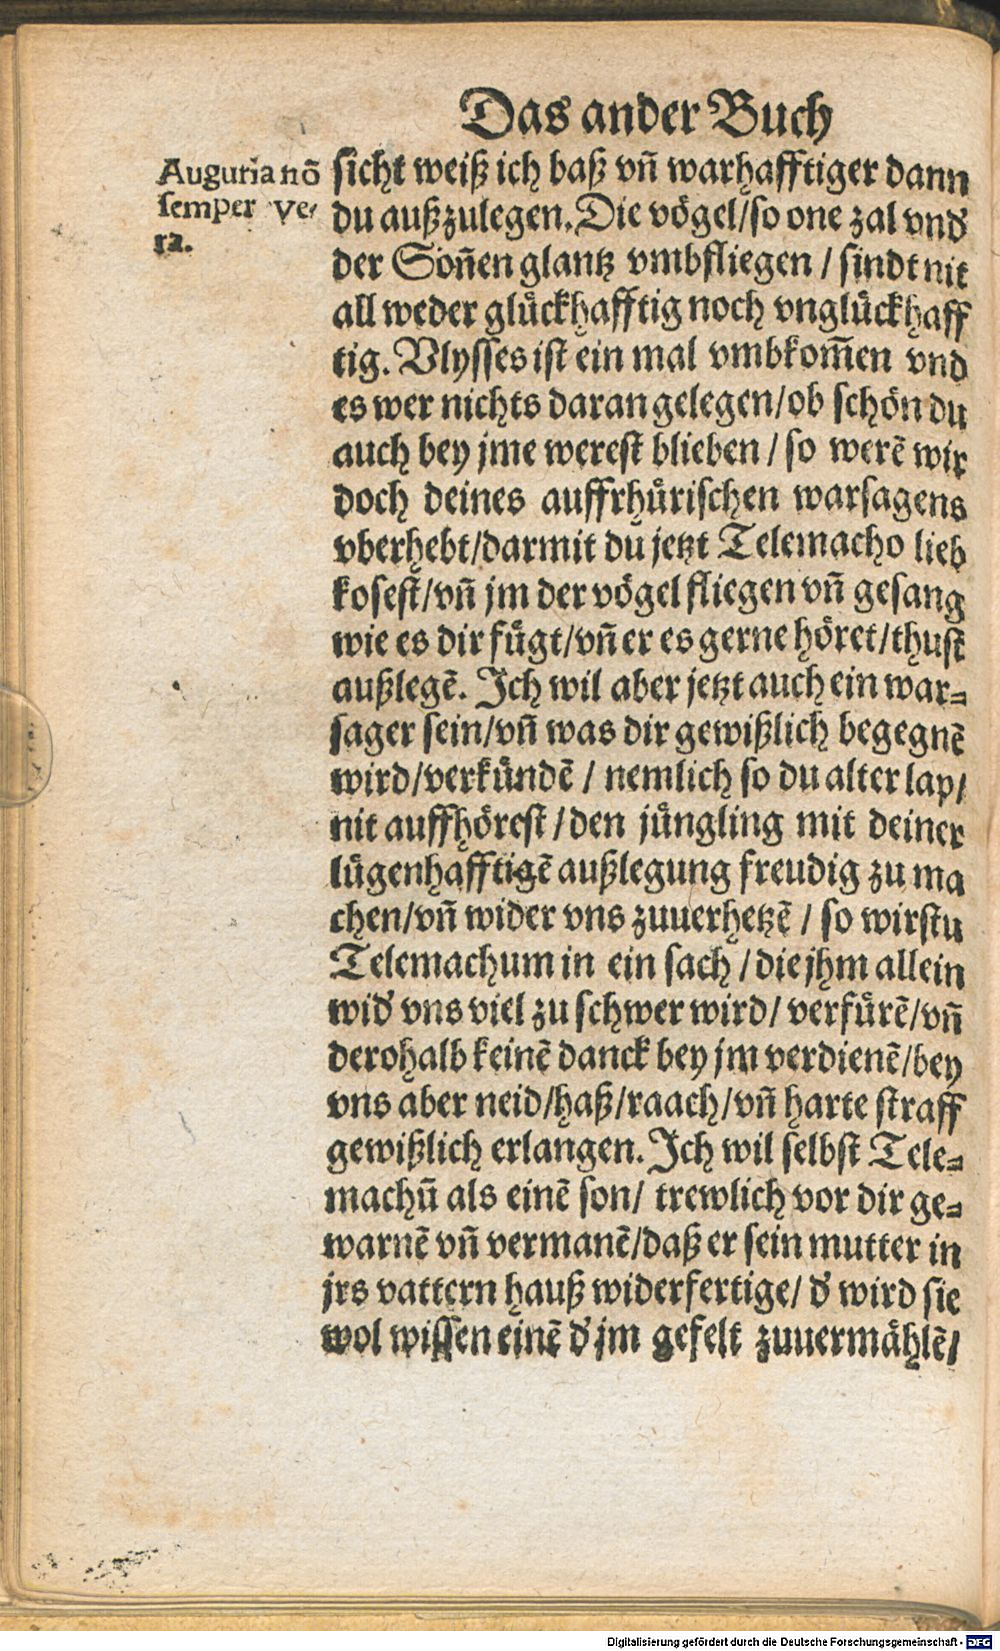 Das ander Buch
Auguria nō
semper ve-
ra.
sicht weiß ich baß vñ warhafftiger dann
du außzulegen. Die vögel/so one zal vnd'
der Soñen glantz vmbfliegen / sindt nit
all weder glückhafftig noch vnglückhaff
tig. Vlysses ist ein mal vmbkom̃en vnd
es wer nichts daran gelegen/ob schön du
auch bey jme werest blieben / so werē wir
doch deines auffrhürischen warsagens
vberhebt/darmit du jetzt Telemacho lieb
kosest/vñ jm der vögel fliegen vñ gesang
wie es dir fügt/vñ er es gerne höret/thust
außlegē. Ich wil aber jetzt auch ein war-
sager sein/vñ was dir gewißlich begegnē
wird/verkündē / nemlich so du alter lap/
nit auffhörest / den jüngling mit deiner
lügenhafftigē außlegung freudig zu ma
chen/vñ wider vns zuuerhetzē / so wirstu
Telemachum in ein sach / die jhm allein
wid' vns viel zu schwer wird/ verfürē/vñ
derohalb keinē danck bey jm verdienē/bey
vns aber neid/haß/raach/vñ harte straff
gewißlich erlangen. Ich wil selbst Tele-
machū als einē son/ trewlich vor dir ge-
warnē vñ vermanē/daß er sein mutter in
jrs vattern hauß widerfertige/ d' wird sie
wol wissen einē d' jm gefelt zuuermählē/
Digitalisierung gefördert durch die Deutsche Forschungsgemeinschaft - DFG